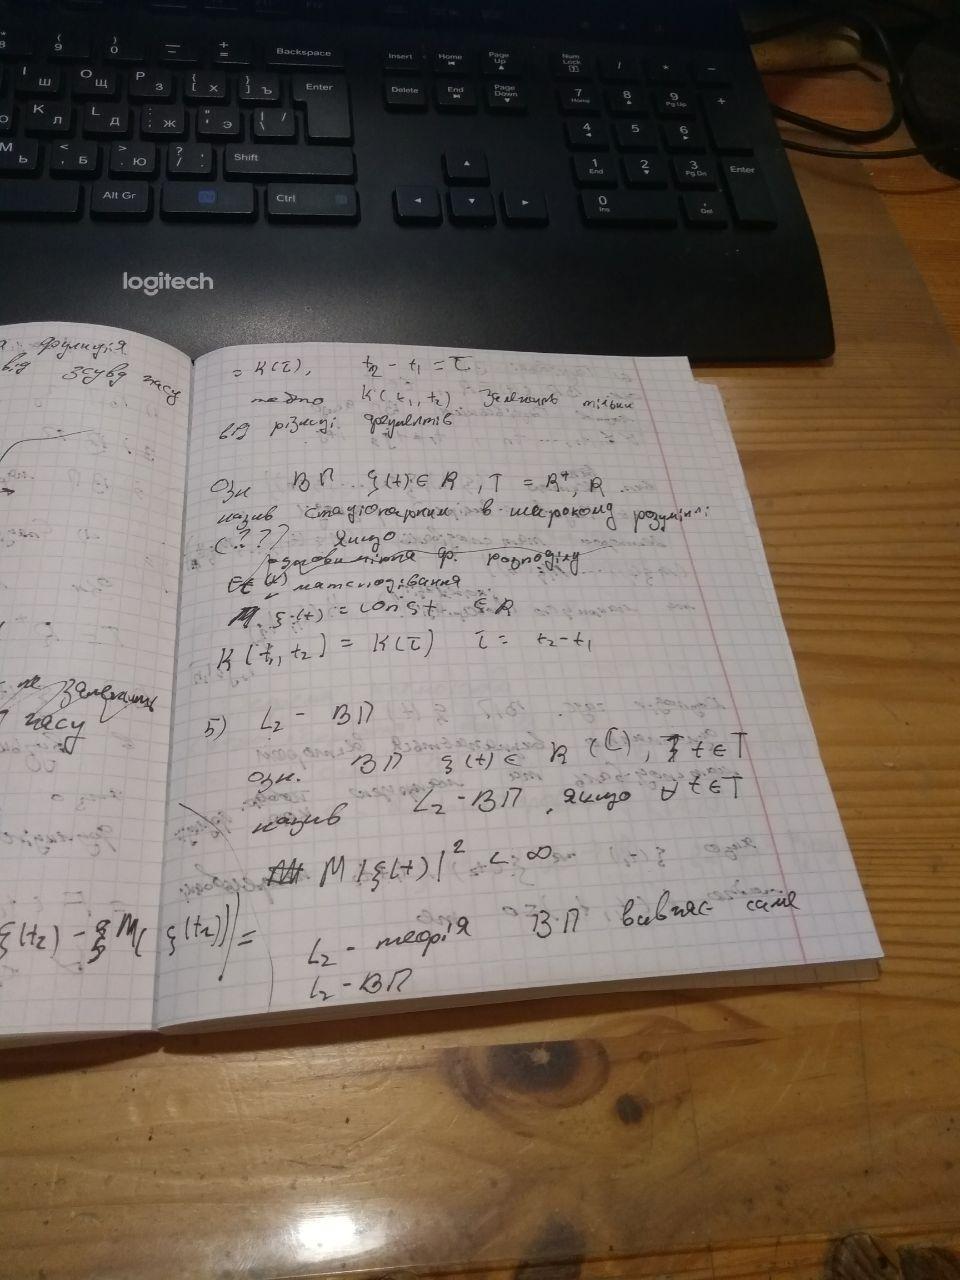 Backspace
Insert
Home
Page Up
Num Lock
Enter
Delete
End
Page Down
7 Home
8
9 Pg Up
4
5
6
Shift
1 End
2
3 Pg Dn
Enter
Alt Gr
Ctrl
0 Ins
Del
logitech
функція
від зсуву часу
не залежить
часу
ξ(t₂) - M( ξ(t₂)) =
= K(τ), t₂ - t₁ = τ
тобто K(t₁, t₂) залежить тільки
від різниці аргументів
Озн ВП ξ(t) ∈ R, T = R⁺, R
назив стаціонарним в широкому розумінні
(??? якщо
ф. розподілу
матсподівання
M ξ(t) = const ∈ R
K(t₁, t₂) = K(τ) τ = t₂ - t₁
5) L₂ - ВП
Озн. ВП ξ(t) ∈ R (C), t ∈ T
назив L₂ - ВП, якщо ∀ t ∈ T
M |ξ(t)|² < ∞
L₂ - теорія ВП вивчає саме
L₂ - ВП